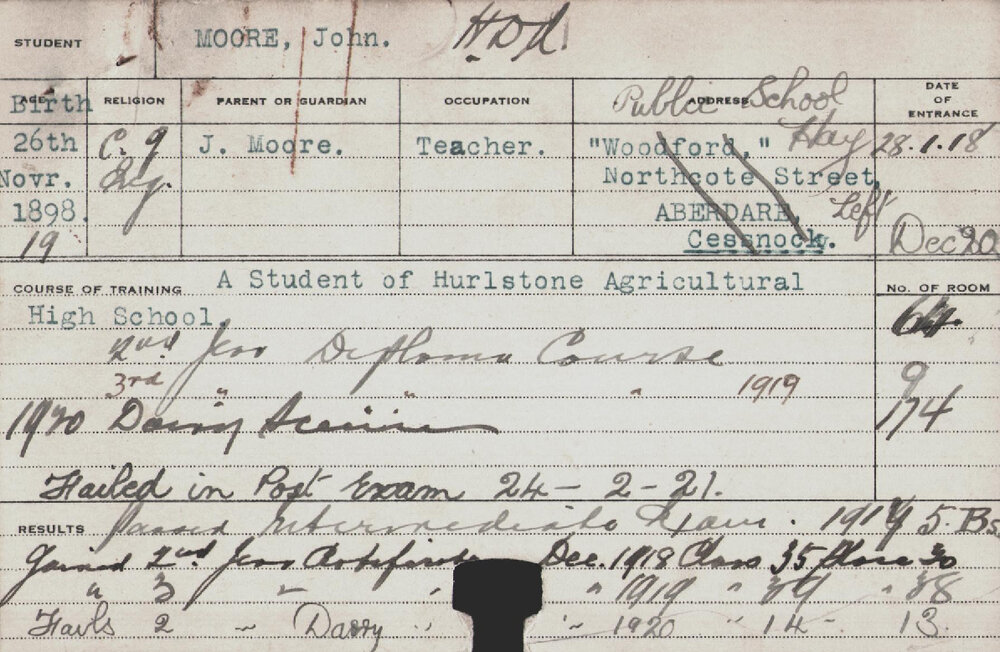 STUDENT MOORE, John. H.D.A.
AGE Birth RELIGION PARENT OR GUARDIAN OCCUPATION ADDRESS Public School DATE OF ENTRANCE
26th C. of J. Moore. Teacher. "Woodford," Hay 28.1.18
Novr. Eng. Northcote Street,
1898. ABERDARE, Left
19 Cessnock. Dec 20
COURSE OF TRAINING A Student of Hurlstone Agricultural NO. OF ROOM
High School. 64.
2nd Year Diploma Course
3rd " " " 1919 9
1920 Dairy Science 174
Failed in Post Exam 24-2-21.
RESULTS Passed Intermediate Exam. 1917 5. Bs
Gained 2nd Year Certificate Dec. 1918 Class 35 Place 30
" 3 " " " 1919 " 39 " 38
2 " Dairy " " 1920 " 14 - 13.